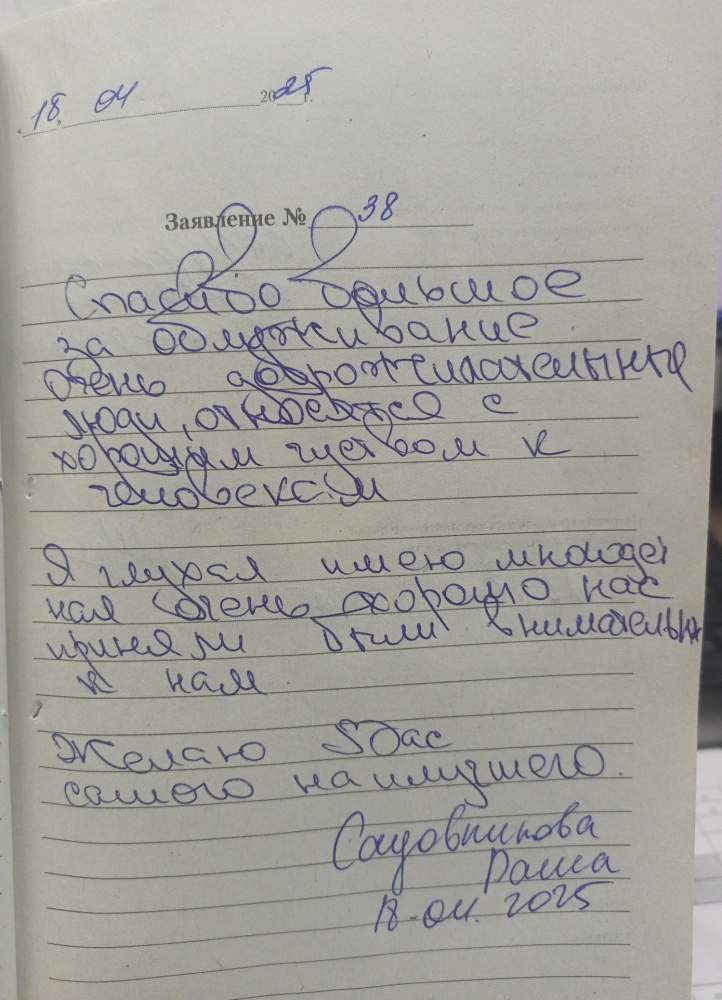 18. 04 2025 г.
Заявление № 38
Спасибо большое
за обслуживание.
очень доброжелательные
люди, относятся с
хорошим чуством к
человекам
Я глухая имею многодет
ная очень хорошо нас
приняли были внимательны
к нам.
Желаю Вас
самого наилучшего.
Садовникова
Даша
18.04.2025